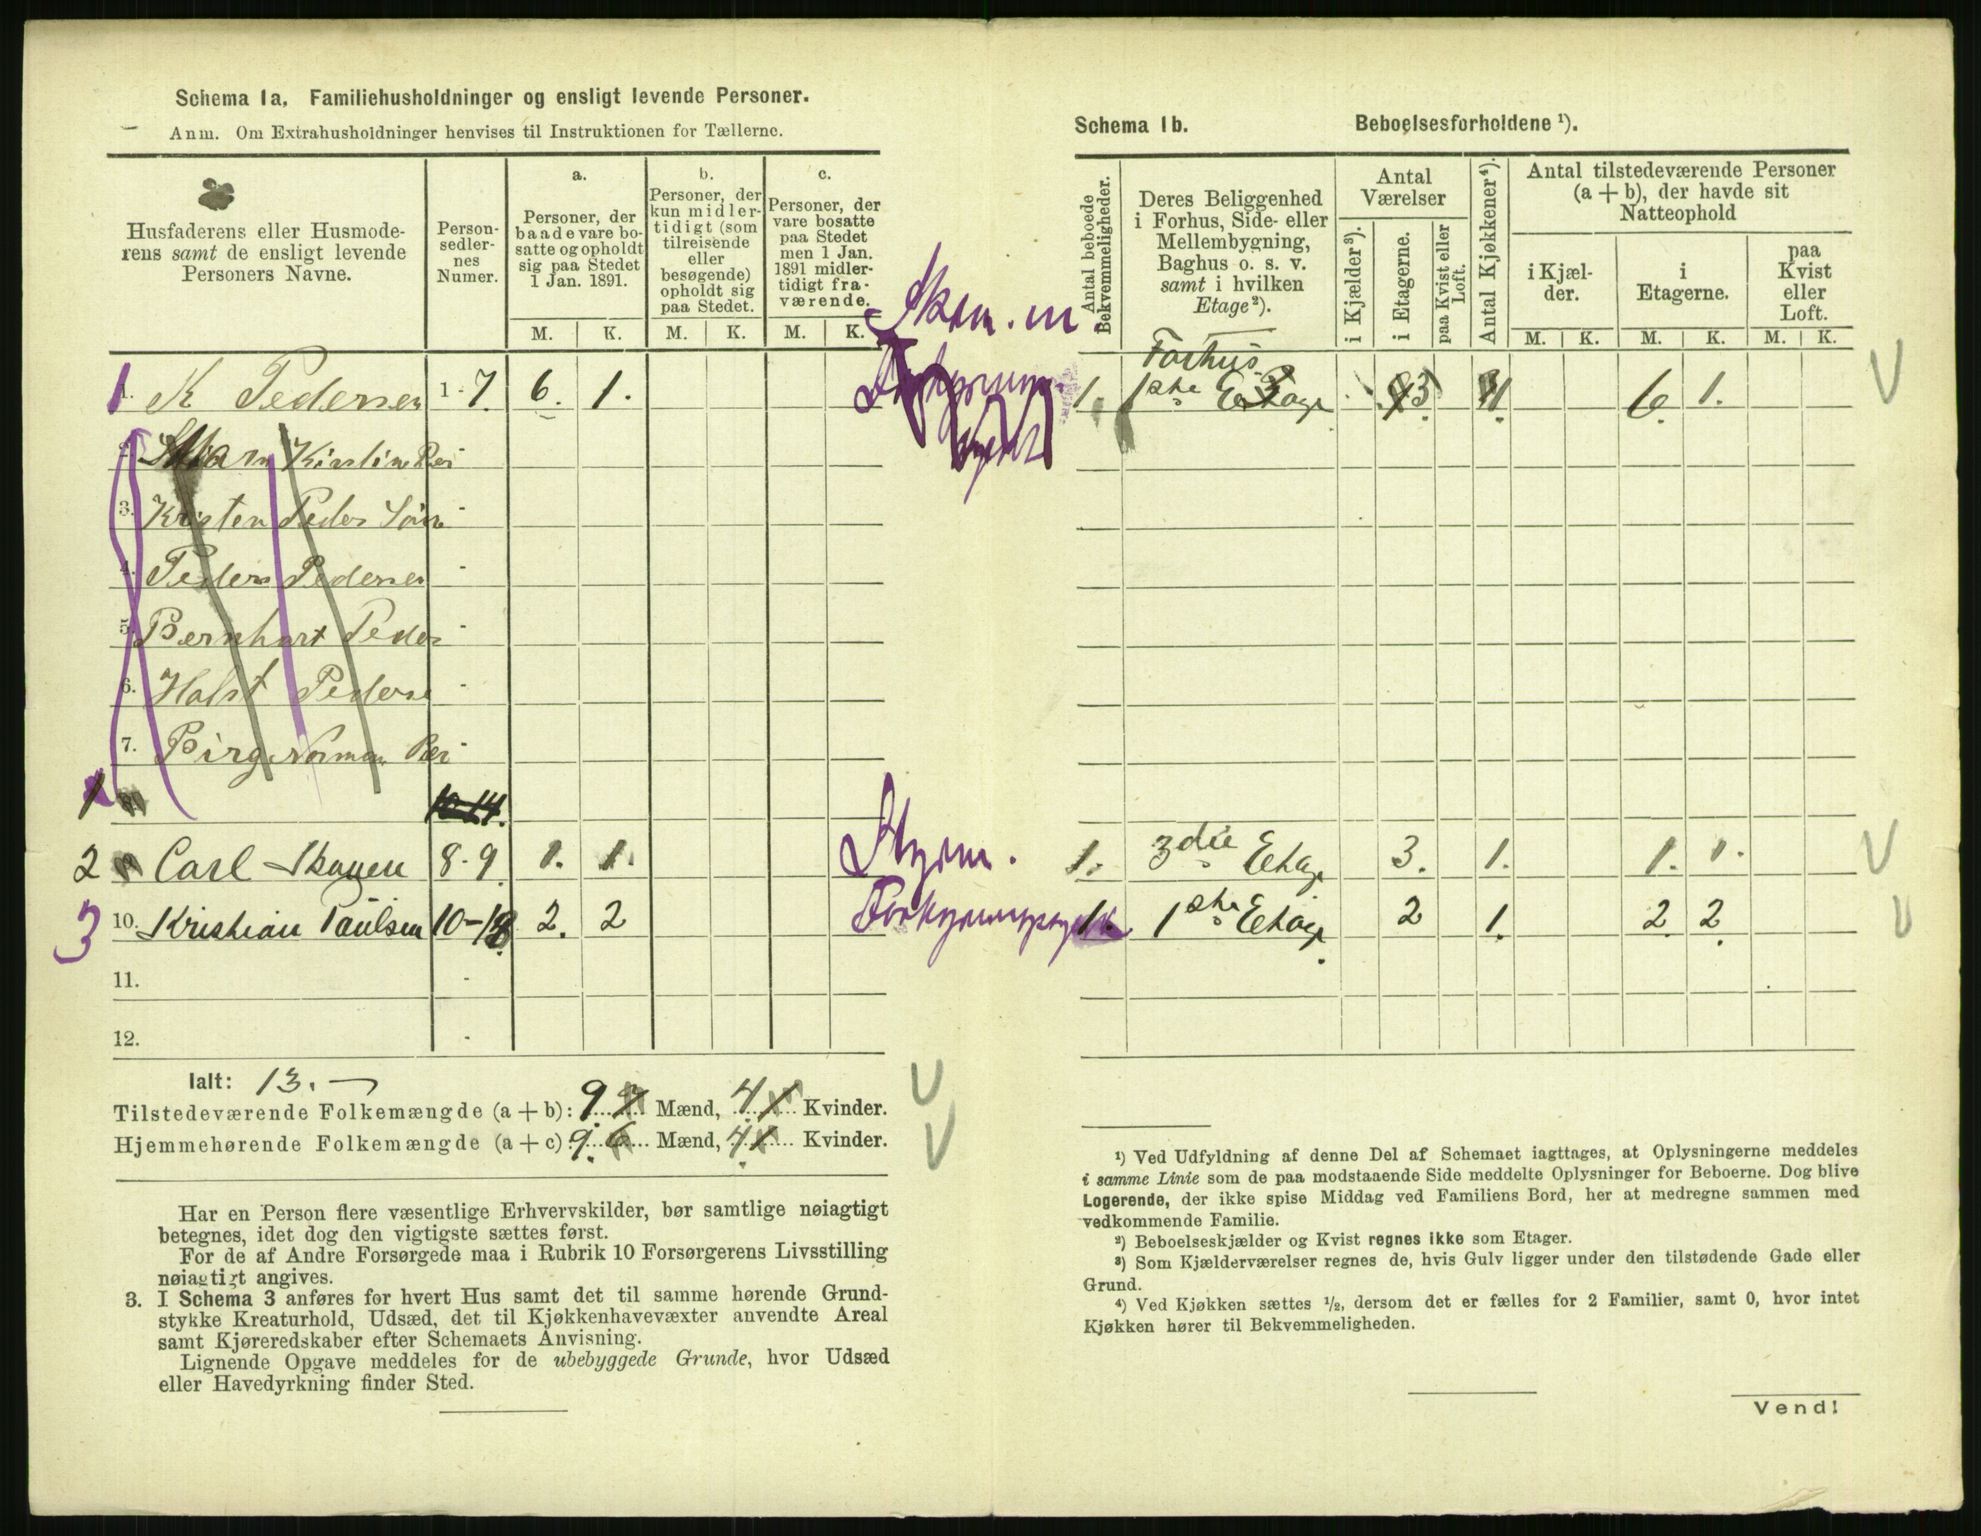 Schema 1a. Familiehusholdninger og ensligt levende Personer.
Anm. Om Extrahusholdninger henvises til Instruktionen for Tællerne.
Husfaderens eller Husmode-
rens samt de ensligt levende
Personers Navne.
Person-
sedler-
nes
Numer.
a.
Personer, der
baade vare bo-
satte og opholdt
sig paa Stedet
1 Jan. 1891.
b.
Personer, der
kun midler-
tidigt (som
tilreisende
eller
besøgende)
opholdt sig
paa Stedet.
c.
Personer, der
vare bosatte
paa Stedet
men 1 Jan.
1891 midler-
tidigt fra-
værende.
M. K. M. K. M. K.
1. K Pedersen 1-7. 6. 1.
2. Kirstine
3. Kristen Peder
4. Peder Pedersen
5. Bernhart Peder
6. Holst Pederse
7. Birg Norman
1 10-14.
2 Carl Skauen 8-9 1. 1.
3 10. Kristian Paulsen 10-13 2. 2
11.
12.
Ialt: 13.
Tilstedeværende Folkemængde (a + b): 9 7 Mænd, 4 1 Kvinder.
Hjemmehørende Folkemængde (a + c) 9. 6 Mænd, 4 1 Kvinder.
Har en Person flere væsentlige Erhvervskilder, bør samtlige nøiagtigt
betegnes, idet dog den vigtigste sættes først.
For de af Andre Forsørgede maa i Rubrik 10 Forsørgerens Livsstilling
nøiagtigt angives.
3. I Schema 3 anføres for hvert Hus samt det til samme hørende Grund-
stykke Kreaturhold, Udsæd, det til Kjøkkenhavevæxter anvendte Areal
samt Kjøreredskaber efter Schemaets Anvisning.
Lignende Opgave meddeles for de ubebyggede Grunde, hvor Udsæd
eller Havedyrkning finder Sted.
Schema 1b. Beboelsesforholdene ¹).
Antal beboede
Bekvemmeligheder.
Deres Beliggenhed
i Forhus, Side- eller
Mellembygning,
Baghus o. s. v.
samt i hvilken
Etage²).
Antal
Værelser
i Kjælder³).
i Etagerne.
paa Kvist eller
Loft.
Antal Kjøkkener⁴).
Antal tilstedeværende Personer
(a + b), der havde sit
Natteophold
i Kjæl-
der.
i
Etagerne.
paa
Kvist
eller
Loft.
M. K. M. K. M. K.
Forhus
1. 1ste Etage 3 1 6. 1.
1. 3die Etage 3. 1. 1. 1.
1. 1ste Etage 2 1. 2. 2.
¹) Ved Udfyldning af denne Del af Schemaet iagttages, at Oplysningerne meddeles
i samme Linie som de paa modstaaende Side meddelte Oplysninger for Beboerne. Dog blive
Logerende, der ikke spise Middag ved Familiens Bord, her at medregne sammen med
vedkommende Familie.
²) Beboelseskjælder og Kvist regnes ikke som Etager.
³) Som Kjælderværelser regnes de, hvis Gulv ligger under den tilstødende Gade eller
Grund.
⁴) Ved Kjøkken sættes ½, dersom det er fælles for 2 Familier, samt 0, hvor intet
Kjøkken hører til Bekvemmeligheden.
Vend!